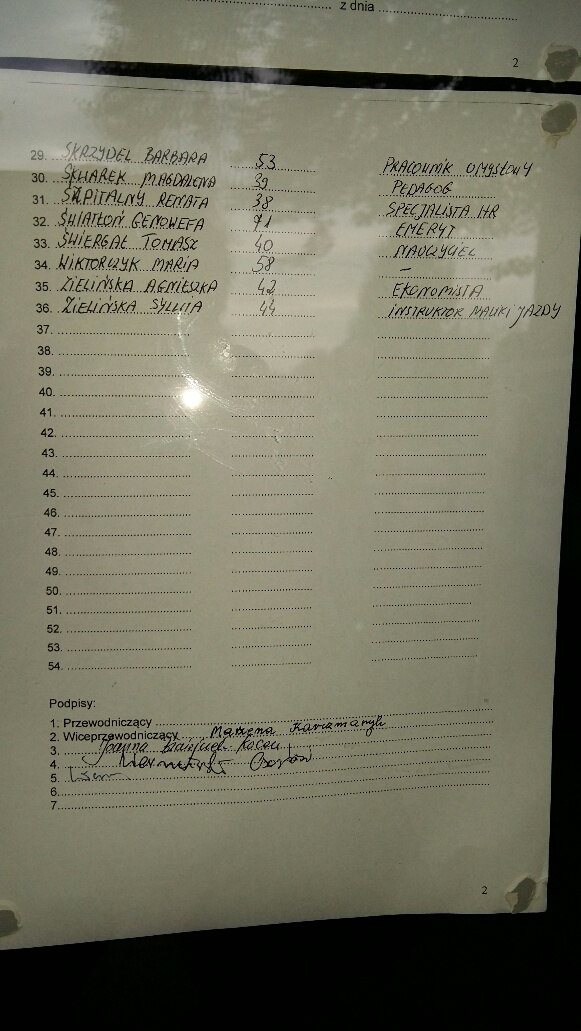 z dnia
2
29. SKRZYDEL BARBARA 53 PRACOWNIK UMYSŁOWY
30. SKWAREK MAGDALENA 39 PEDAGOG
31. SZPITALNY RENATA 38 SPECJALISTA HR
32. ŚWIATŁOŃ GENOWEFA 71 EMERYT
33. ŚWIERGAŁ TOMASZ 40 NAUCZYCIEL
34. WIKTORCZYK MARIA 58 –
35. ZIELIŃSKA AGNIESZKA 42 EKONOMISTA
36. ZIELIŃSKA SYLWIA 44 INSTRUKTOR NAUKI JAZDY
37.
38.
39.
40.
41.
42.
43.
44.
45.
46.
47.
48.
49.
50.
51.
52.
53.
54.
Podpisy:
1. Przewodniczący
2. Wiceprzewodniczący Marzena
3. Joanna
4.
5.
6.
7.
2